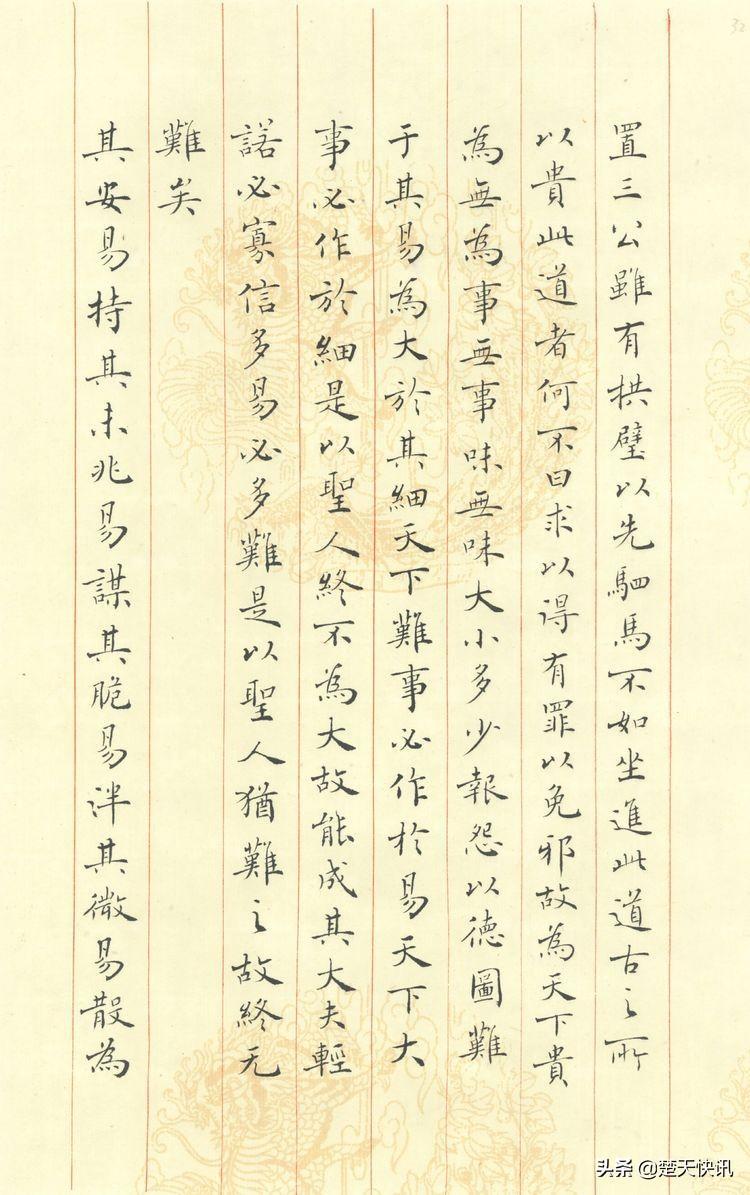 置三公雖有拱璧以先駟馬不如坐進此道古之所
以貴此道者何不曰求以得有罪以免邪故為天下貴
為無為事無事味無味大小多少報怨以德圖難
于其易為大於其細天下難事必作於易天下大
事必作於細是以聖人終不為大故能成其大夫輕
諾必寡信多易必多難是以聖人猶難之故終无
難矣
其安易持其未兆易謀其脆易泮其微易散為
32
头条 @楚天快讯